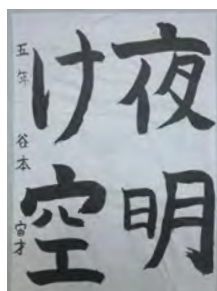 夜明
け空
五年 谷本